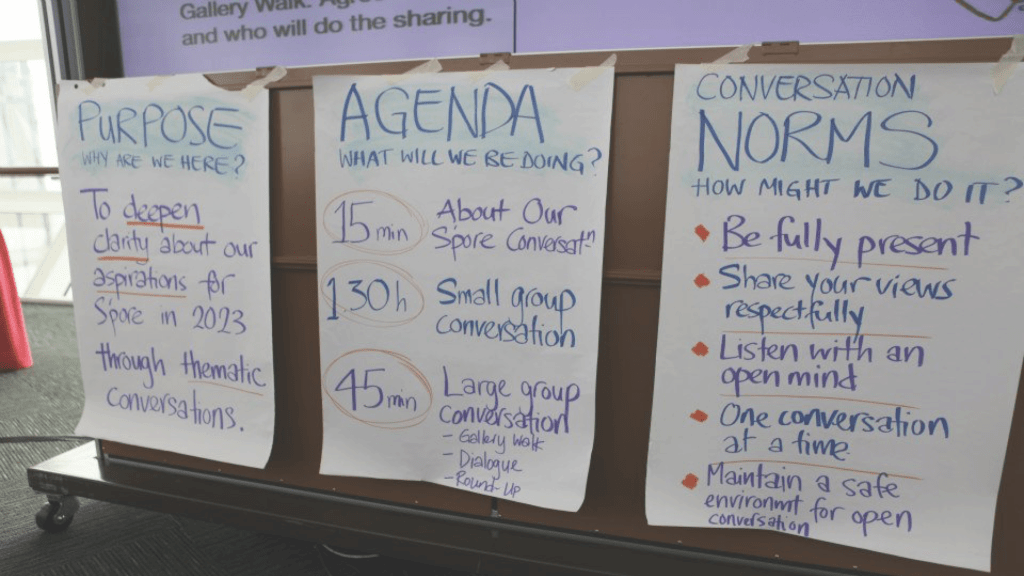 Gallery Walk. Agre
and who will do the sharing.
PURPOSE
WHY ARE WE HERE?
To deepen
clarity about our
aspirations for
S'pore in 2023
through thematic
conversations.
AGENDA
WHAT WILL WE BE DOING?
15 min
About Our
S'pore Conversatⁿ
1.30h
Small group
conversation
45 min
Large group
conversation
- Gallery Walk
- Dialogue
- Round-Up
CONVERSATION
NORMS
HOW MIGHT WE DO IT?
Be fully present
Share your views
respectfully
Listen with an
open mind
One conversation
at a time
Maintain a safe
environmt for open
conversation